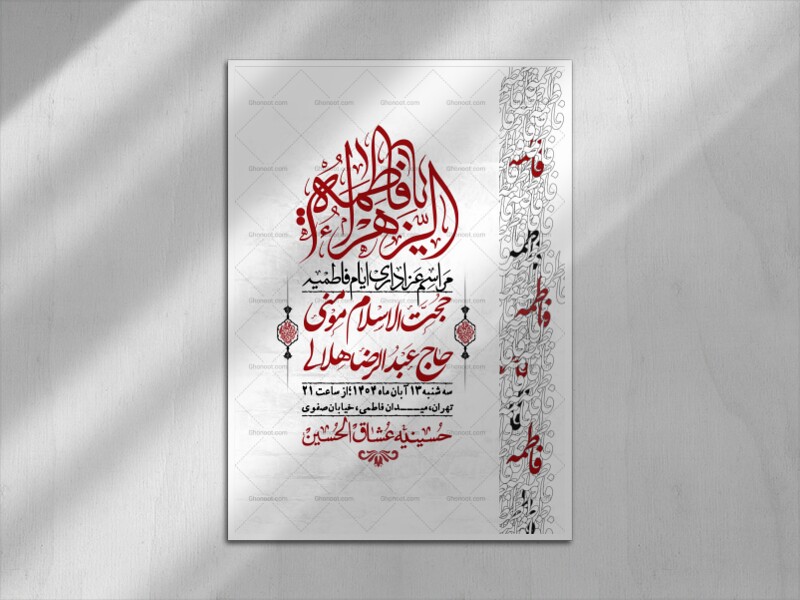 یا فاطمة
الزهراء
مراسم عزاداری ایام فاطمیه
حجت الاسلام مومنی
حاج عبدالرضا هلالی
سه شنبه ۱۳ آبان ماه ۱۴۰۴؛ از ساعت ۲۱
تهران، میدان فاطمی، خیابان صفوی
حسینیه عشاق الحسین
فاطمه
فاطمه
فاطمه
فاطمه
Ghonoot.com